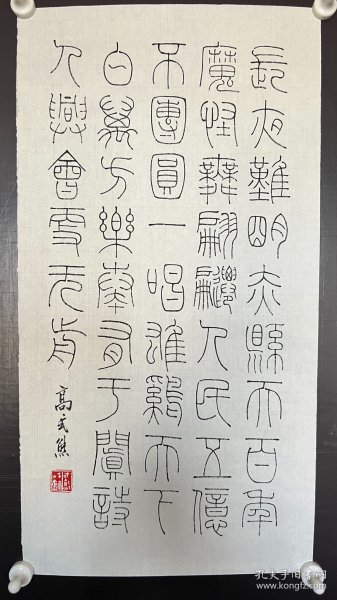 長夜難明赤縣天百年
魔怪舞翩躚人民五億
不團圓一唱雄雞天下
白萬方樂奏有于闐詩
人興會更无前
高式熊
孔夫子旧书网
www.kongfz.com